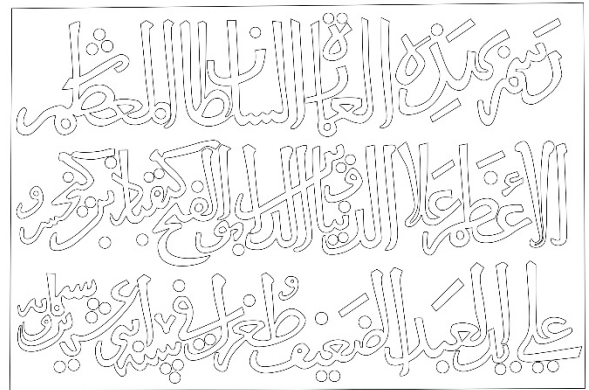 رسم بهذه العمارة السلطان المعظم
الأعظم علا الدنيا والدين ابو الفتح كيقباد بن كيخسرو
على يد العبد الضعيف طغرل في سنة عشرين وستمايه